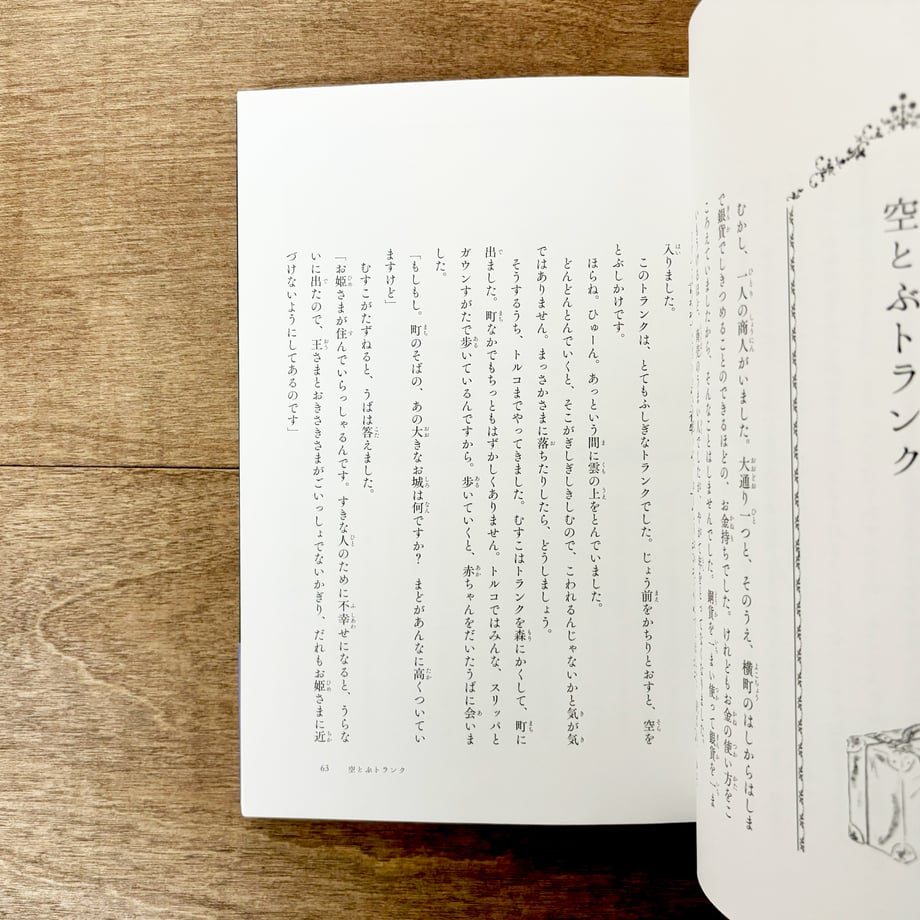 空とぶトランク
むかし、一人の商人がいました。大通り一つと、そのうえ、横町のはしからはしま
で銀貨でしきつめることのできるほどの、お金持ちでした。けれどもお金の使い方をこ
ころえていましたから、そんなことはしませんでした。銅貨を一まい使って銀貨を一ま
入りました。
このトランクは、とてもふしぎなトランクでした。じょう前をかちりとおすと、空を
とぶしかけです。
ほらね。ひゅーん。あっという間に雲の上をとんでいました。
どんどんとんでいくと、そこがぎしぎしきしむので、こわれるんじゃないかと気が気
ではありません。まっさかさまに落ちたりしたら、どうしましょう。
そうするうち、トルコまでやってきました。むすこはトランクを森にかくして、町に
出ました。町なかでもちっともはずかしくありません。トルコではみんな、スリッパと
ガウンすがたで歩いているんですから。歩いていくと、赤ちゃんをだいたうばに会いま
した。
「もしもし。町のそばの、あの大きなお城は何ですか? まどがあんなに高くついてい
ますけど」
むすこがたずねると、うばは答えました。
「お姫さまが住んでいらっしゃるんです。すきな人のために不幸せになると、うらな
いに出たので、王さまとおきさきさまがごいっしょでないかぎり、だれもお姫さまに近
づけないようにしてあるのです」
63 空とぶトランク